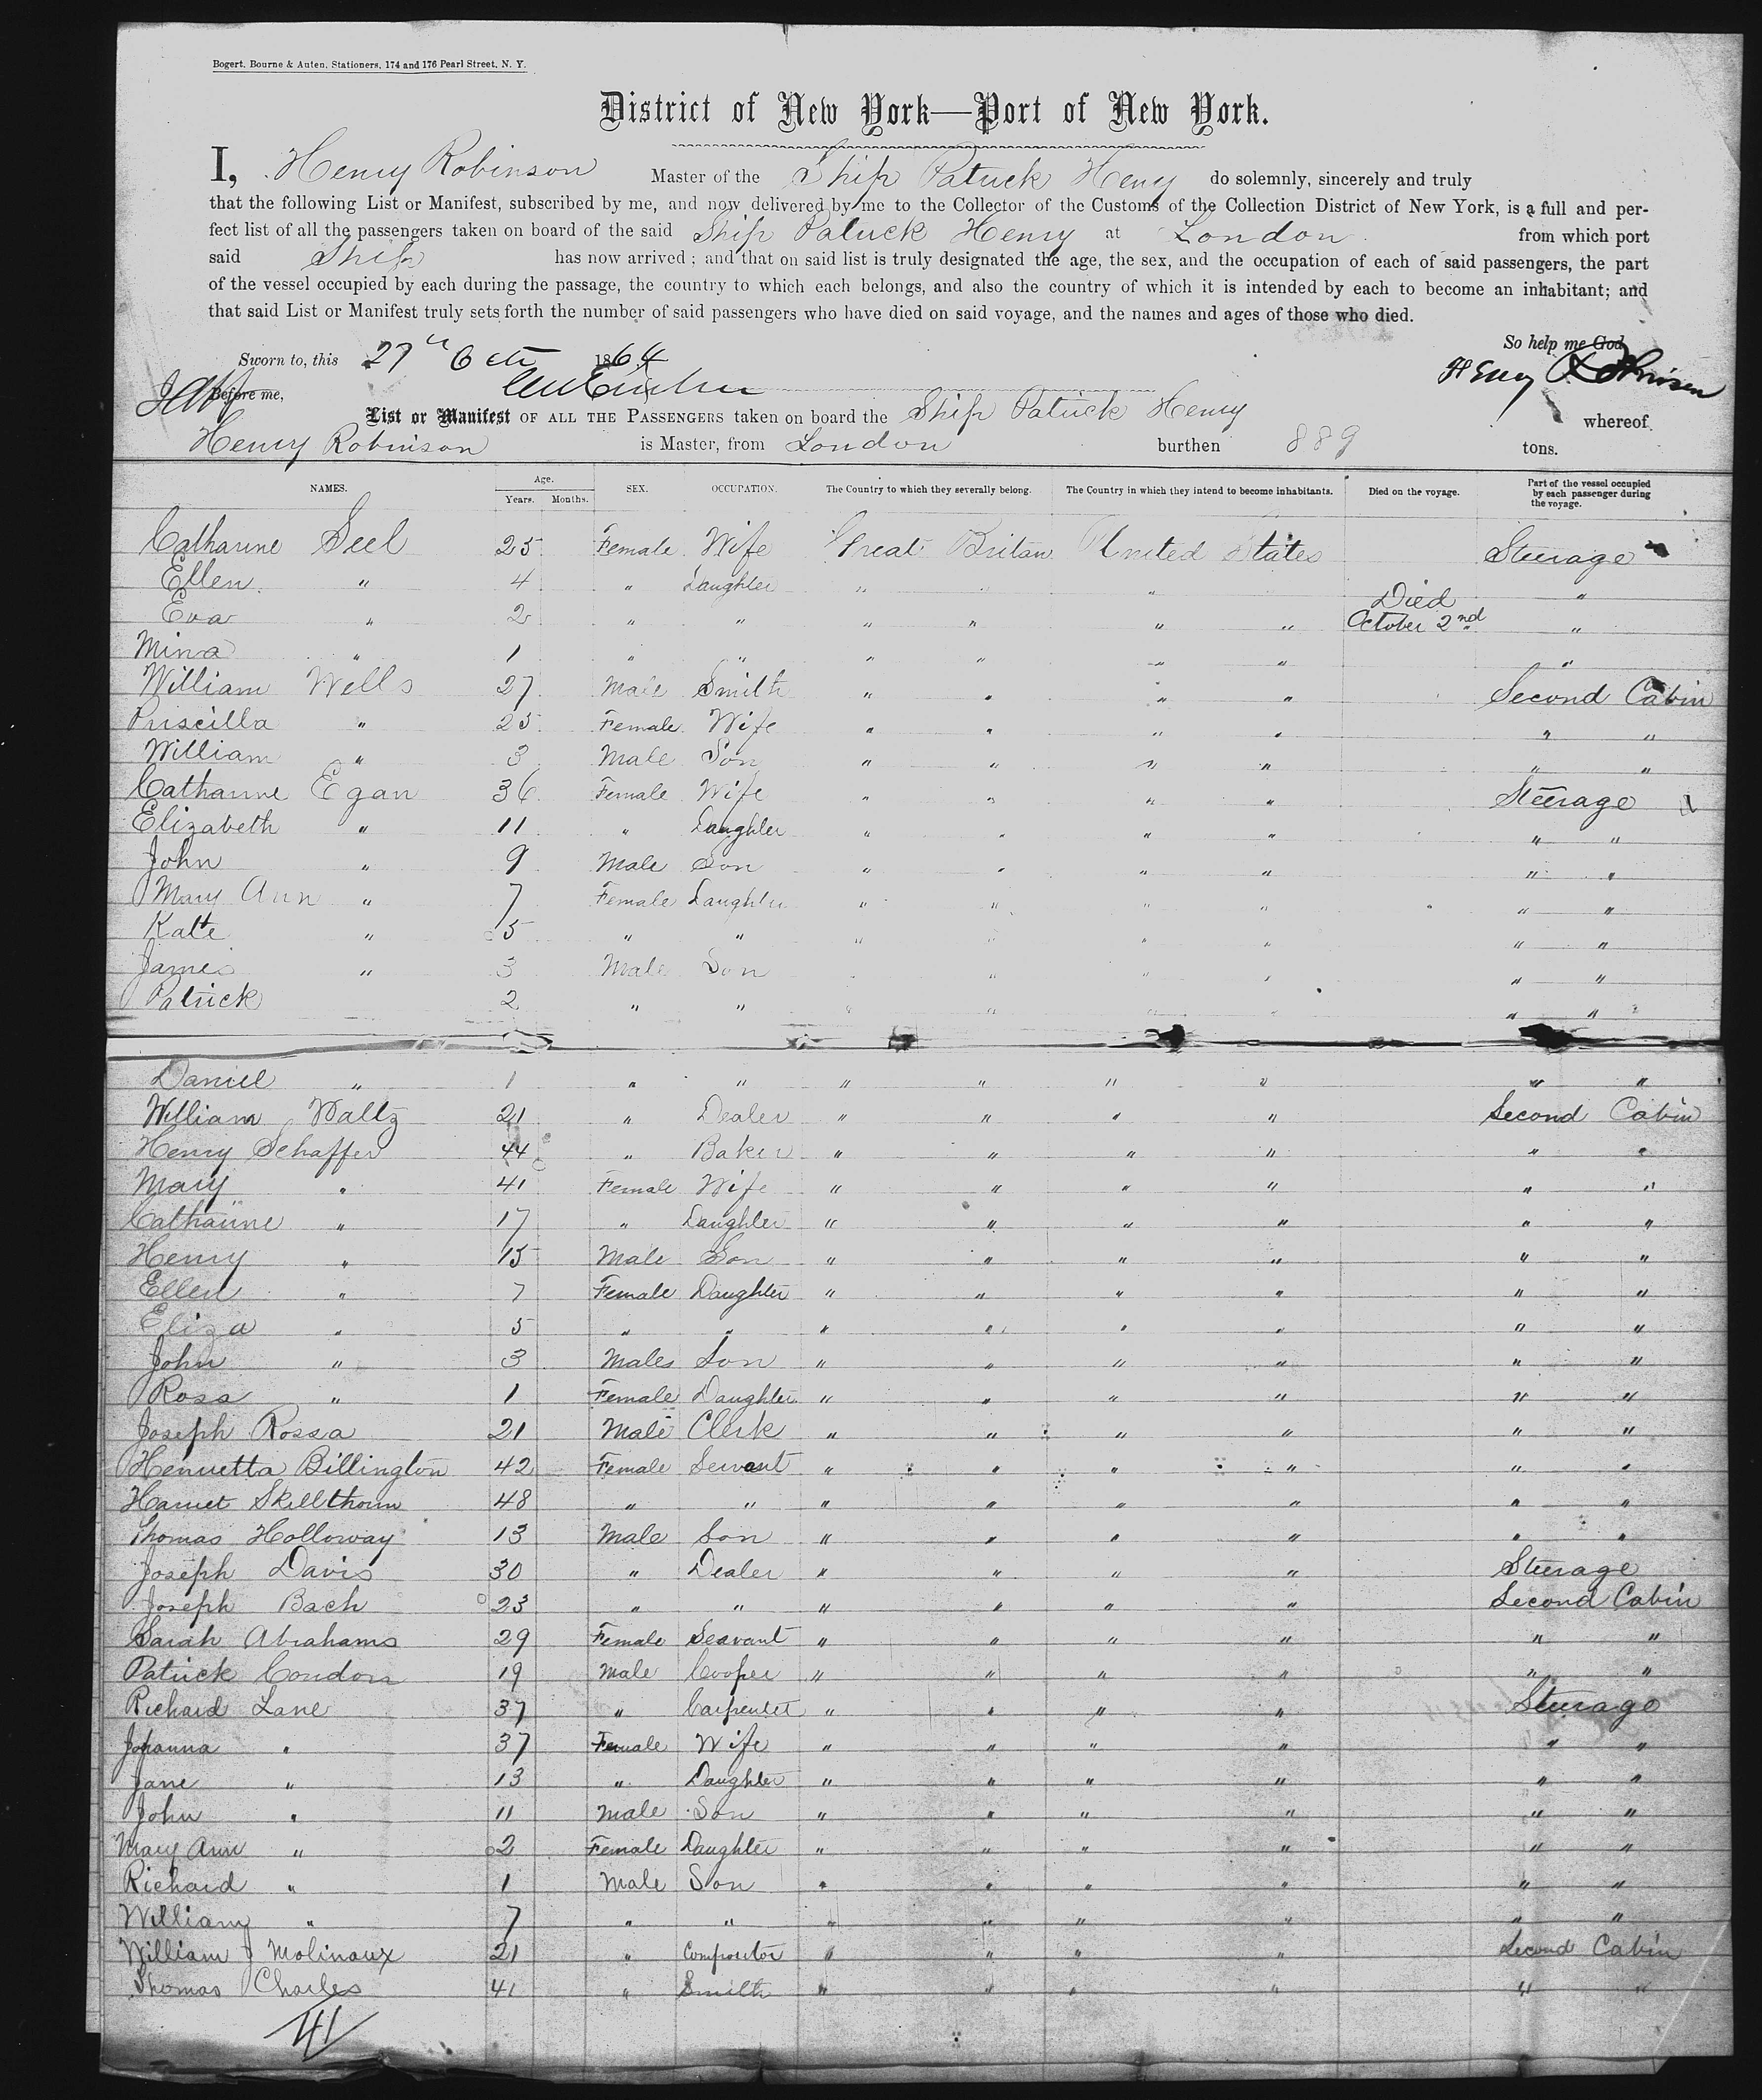 Bogert, Bourne & Auten, Stationers, 174 and 176 Pearl Street, N. Y.
District of New York—Port of New York.
I, Henry Robinson Master of the Ship Patrick Henry do solemnly, sincerely and truly
that the following List or Manifest, subscribed by me, and now delivered by me to the Collector of the Customs of the Collection District of New York, is a full and per-
fect list of all the passengers taken on board of the said Ship Patrick Henry at London from which port
said Ship has now arrived; and that on said list is truly designated the age, the sex, and the occupation of each of said passengers, the part
of the vessel occupied by each during the passage, the country to which each belongs, and also the country of which it is intended by each to become an inhabitant; and
that said List or Manifest truly sets forth the number of said passengers who have died on said voyage, and the names and ages of those who died.
So help me God
Sworn to, this 27th Octr 1864 Henry Robinson
Before me,
List or Manifest OF ALL THE PASSENGERS taken on board the Ship Patrick Henry whereof
Henry Robinson is Master, from London burthen 889 tons.
NAMES. Age. Years. Months. SEX. OCCUPATION. The Country to which they severally belong. The Country in which they intend to become inhabitants. Died on the voyage. Part of the vessel occupied by each passenger during the voyage.
Catharine Seel 25 Female Wife Great Britan United States Steerage
Ellen " 4 " Daughter " " " "
Eva " 2 " " " " " " Died October 2nd "
Mina " 1 " " " " " " "
William Wells 27 Male Smith " " " " Second Cabin
Priscilla " 25 Female Wife " " " " " "
William " 3 Male Son " " " " " "
Catharine Egan 36 Female Wife " " " " Steerage
Elizabeth " 11 " Daughter " " " " " "
John " 9 Male Son " " " " " "
Mary Ann " 7 Female Daughter " " " " " "
Kate " 5 " " " " " " " "
James " 3 Male Son " " " " "
Patrick 2 " " " " " " " "
Daniel " 1 " " " " " " " "
William Waltz 21 " Dealer " " " " Second Cabin
Henry Schaffer 44 " Baker " " " " " "
Mary " 41 Female Wife " " " " " "
Catharine " 17 " Daughter " " " " " "
Henry " 15 Male Son " " " " " "
Ellen " 7 Female Daughter " " " " " "
Eliza " 5 " " " " " " " "
John " 3 Males Son " " " " " "
Rosa " 1 Female Daughter " " " " " "
Joseph Rossa 21 Male Clerk " " " " " "
Henrietta Billington 42 Female Servant " " " " " "
Harriet Skillthorn 48 " " " " " " " "
Thomas Holloway 13 Male Son " " " " " "
Joseph Davis 30 " Dealer " " " " Steerage
Joseph Bach 23 " " " " " " Second Cabin
Sarah Abrahams 29 Female Seavant " " " " " "
Patrick Condon 19 Male Cooper " " " " " "
Richard Lane 37 " Carpenter " " " " Steerage
Johanna " 37 Female Wife " " " " " "
Jane " 13 " Daughter " " " " " "
John " 11 Male Son " " " " " "
Mary Ann " 2 Female Daughter " " " " " "
Richard " 1 Male Son " " " " " "
William " 7 " " " " " " " "
William J Molinaux 21 " Compositor " " " " Second Cabin
Thomas Charles 41 " Smith " " " " " "
41